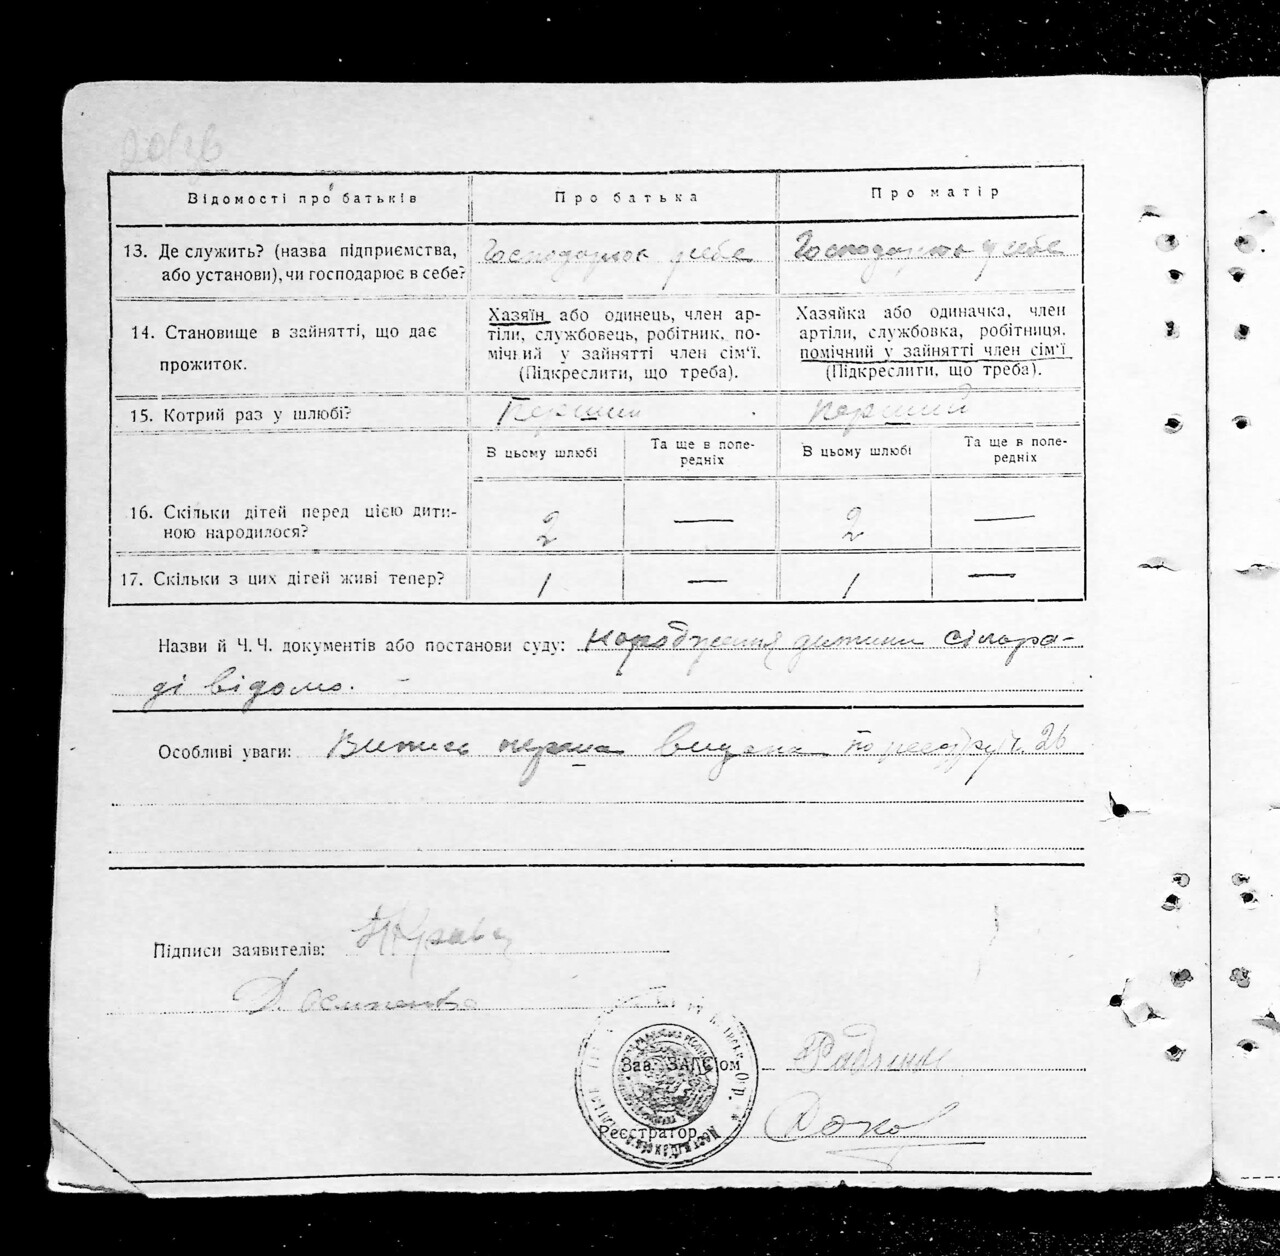 Відомості про батьків
Про батька
Про матір
13. Де служить? (назва підприємства,
або установи), чи господарює в себе?
Господарює у себе
Господарює у себе
14. Становище в зайнятті, що дає
прожиток.
Хазяїн або одинець, член ар-
тіли, службовець, робітник, по-
мічний у зайнятті член сім'ї.
(Підкреслити, що треба).
Хазяйка або одиначка, член
артіли, службовка, робітниця,
помічний у зайнятті член сім'ї
(Підкреслити, що треба).
15. Котрий раз у шлюбі?
Перший
Перший
В цьому шлюбі
Та ще в попе-
редніх
В цьому шлюбі
Та ще в попе-
редніх
16. Скільки дітей перед цією дити-
ною народилося?
2
—
2
—
17. Скільки з цих дітей живі тепер?
1
—
1
—
Назви й Ч. Ч. документів або постанови суду: народження дитини сільра-
ді відомо. —
Особливі уваги: Витись перша видана по реєстру ч. 26
Підписи заявителів: Кравец
Д. Осипенко
Зав. ЗАГС'ом
Реєстратор